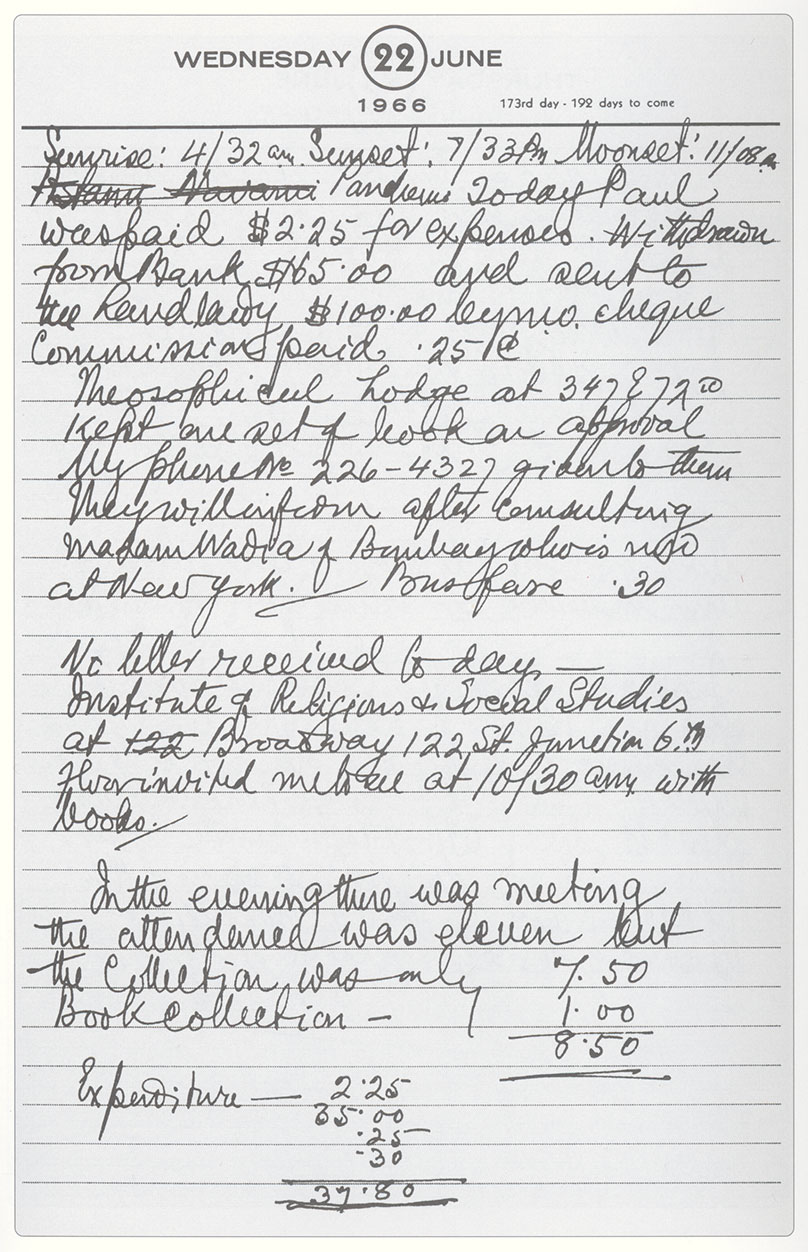 WEDNESDAY 22 JUNE
1966 173rd day - 192 days to come
Sunrise: 4/32 am Sunset: 7/33 Pm Moonset: 11/08
Today Paul
was paid $2.25 for expenses. Withdrawn
from Bank $65.00 and sent to
the Landlady $100.00 by mo. cheque
Commission paid .25 ¢
Theosophical Lodge at 347 E 72
Kept one set of book on approval
My phone No 226-4327 given to them
They will inform after consulting
Madam Wadia of Bombay who is now
at New York. Bus fare .30
No letter received to day —
Institute of Religious & Social Studies
at 122 Broadway 122 St. Junction 6th
floor invited me to see at 10/30 am with
books.
In the evening there was meeting
the attendance was eleven but
the Collection was only 7.50
Book Collection — 1.00
8.50
Expenditure — 2.25
35.00
.25
.30
37.80